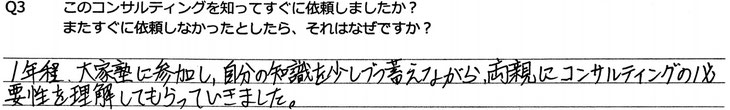 Q3 このコンサルティングを知ってすぐに依頼しましたか？
またすぐに依頼しなかったとしたら、それはなぜですか？
1年程、大家塾に参加し、自分の知識を少しづつ蓄えながら、両親にコンサルティングの必
要性を理解してもらっていきました。